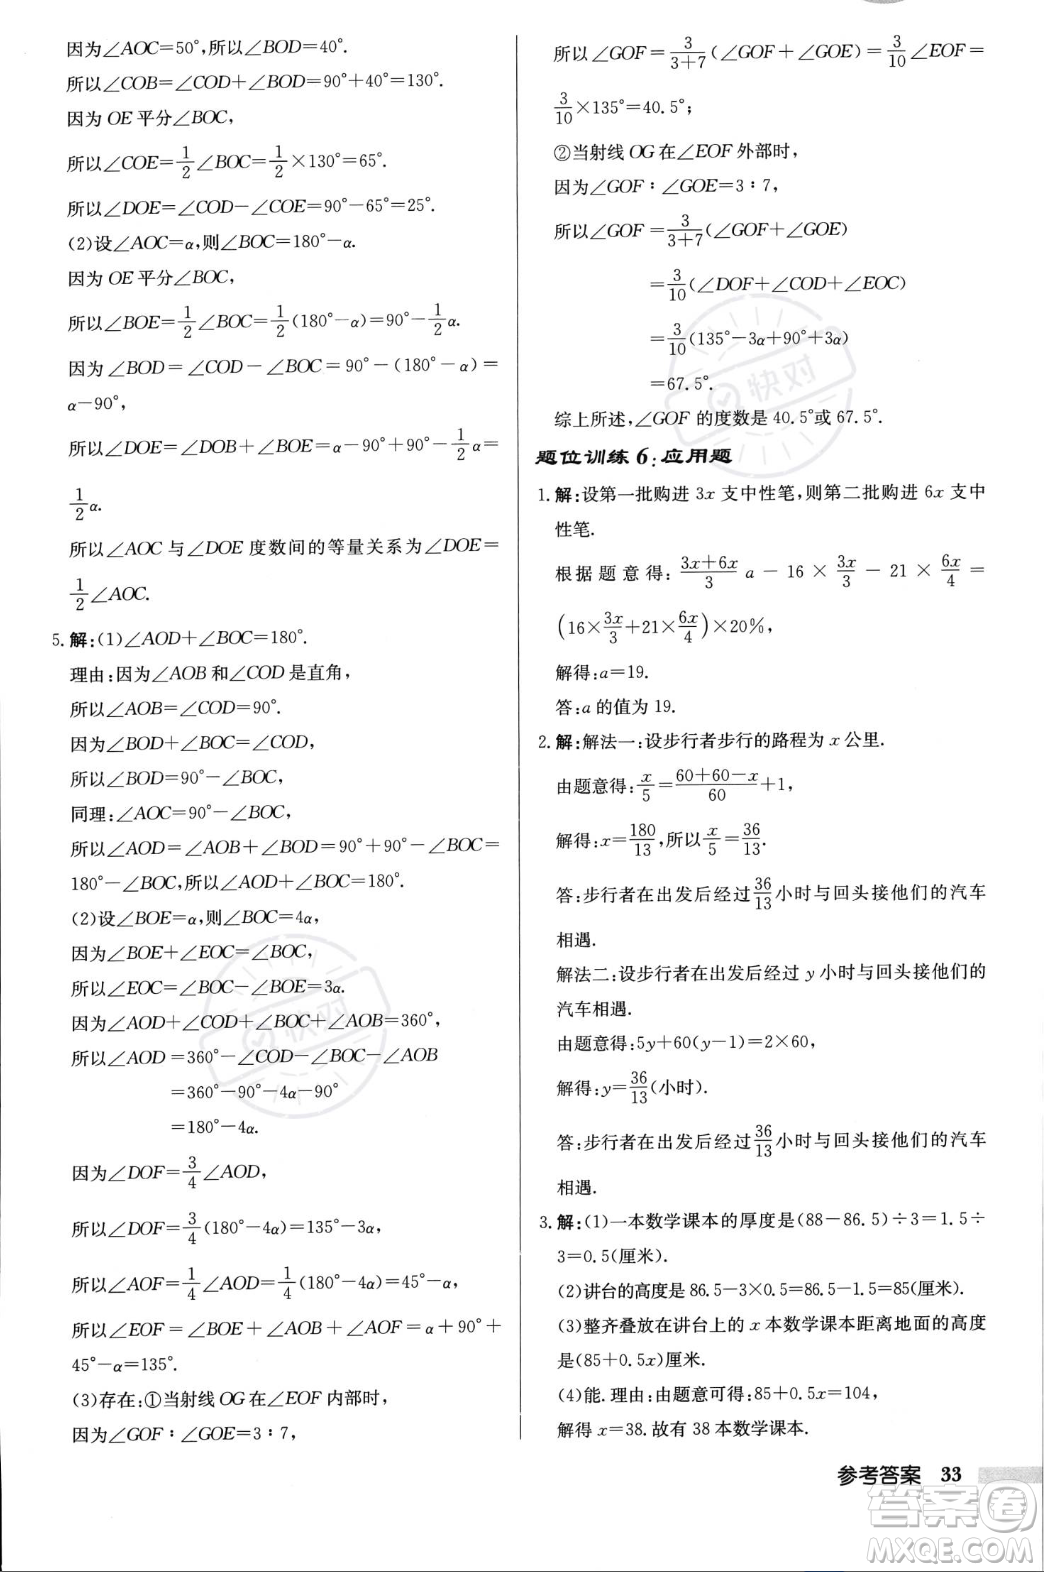 因为∠AOC=50°,所以∠BOD=40°.
所以∠COB=∠COD+∠BOD=90°+40°=130°.
因为 OE 平分∠BOC,
所以∠COE=1/2∠BOC=1/2×130°=65°.
所以∠DOE=∠COD-∠COE=90°-65°=25°.
(2)设∠AOC=α,则∠BOC=180°-α.
因为 OE 平分∠BOC,
所以∠BOE=1/2∠BOC=1/2(180°-α)=90°-1/2α.
因为∠BOD=∠COD-∠BOC=90°-(180°-α)=
α-90°,
所以∠DOE=∠DOB+∠BOE=α-90°+90°-1/2α=
1/2α.
所以∠AOC 与∠DOE 度数间的等量关系为∠DOE=
1/2∠AOC.
5.解:(1)∠AOD+∠BOC=180°.
理由:因为∠AOB 和∠COD 是直角,
所以∠AOB=∠COD=90°.
因为∠BOD+∠BOC=∠COD,
所以∠BOD=90°-∠BOC,
同理:∠AOC=90°-∠BOC,
所以∠AOD=∠AOB+∠BOD=90°+90°-∠BOC=
180°-∠BOC,所以∠AOD+∠BOC=180°.
(2)设∠BOE=α,则∠BOC=4α,
因为∠BOE+∠EOC=∠BOC,
所以∠EOC=∠BOC-∠BOE=3α.
因为∠AOD+∠COD+∠BOC+∠AOB=360°,
所以∠AOD=360°-∠COD-∠BOC-∠AOB
=360°-90°-4α-90°
=180°-4α.
因为∠DOF=3/4∠AOD,
所以∠DOF=3/4(180°-4α)=135°-3α,
所以∠AOF=1/4∠AOD=1/4(180°-4α)=45°-α,
所以∠EOF=∠BOE+∠AOB+∠AOF=α+90°+
45°-α=135°.
(3)存在:①当射线 OG 在∠EOF 内部时,
因为∠GOF∶∠GOE=3∶7,
所以∠GOF=3/(3+7)(∠GOF+∠GOE)=3/10∠EOF=
3/10×135°=40.5°;
②当射线 OG 在∠EOF 外部时,
因为∠GOF∶∠GOE=3∶7,
所以∠GOF=3/(3+7)(∠GOF+∠GOE)
=3/10(∠DOF+∠COD+∠EOC)
=3/10(135°-3α+90°+3α)
=67.5°.
综上所述,∠GOF 的度数是 40.5°或 67.5°.
题位训练 6:应用题
1.解:设第一批购进 3x 支中性笔,则第二批购进 6x 支中
性笔.
根据题意得:(3x+6x)/3 a-16×3x/3-21×6x/4=
(16×3x/3+21×6x/4)×20%,
解得:a=19.
答:a 的值为 19.
2.解:解法一:设步行者步行的路程为 x 公里.
由题意得:x/5=(60+60-x)/60+1,
解得:x=180/13,所以x/5=36/13.
答:步行者在出发后经过36/13小时与回头接他们的汽车
相遇.
解法二:设步行者在出发后经过 y 小时与回头接他们的
汽车相遇.
由题意得:5y+60(y-1)=2×60,
解得:y=36/13(小时).
答:步行者在出发后经过36/13小时与回头接他们的汽车
相遇.
3.解:(1)一本数学课本的厚度是(88-86.5)÷3=1.5÷
3=0.5(厘米).
(2)讲台的高度是 86.5-3×0.5=86.5-1.5=85(厘米).
(3)整齐叠放在讲台上的 x 本数学课本距离地面的高度
是(85+0.5x)厘米.
(4)能.理由:由题意可得:85+0.5x=104,
解得 x=38.故有 38 本数学课本.
参考答案 33
快对
快对
答案卷
MXQE.COM